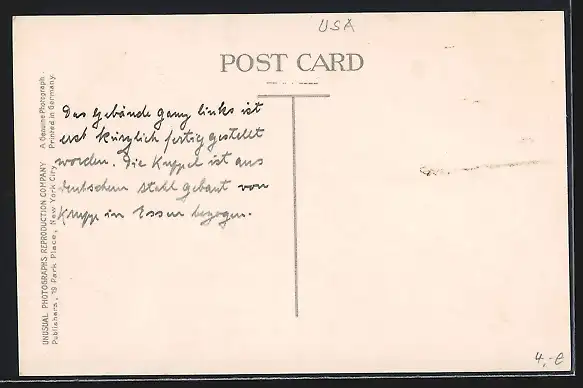 USA
POST CARD
Das Gebäude ganz links ist
erst kürzlich fertig gestellt
worden. Die Kuppel ist aus
deutschem Stahl gebaut von
Krupp in Essen bezogen.
UNUSUAL PHOTOGRAPHS REPRODUCTION COMPANY A Genuine Photograph.
Publishers, 19 Park Place, New York City. Printed in Germany.
4,-€